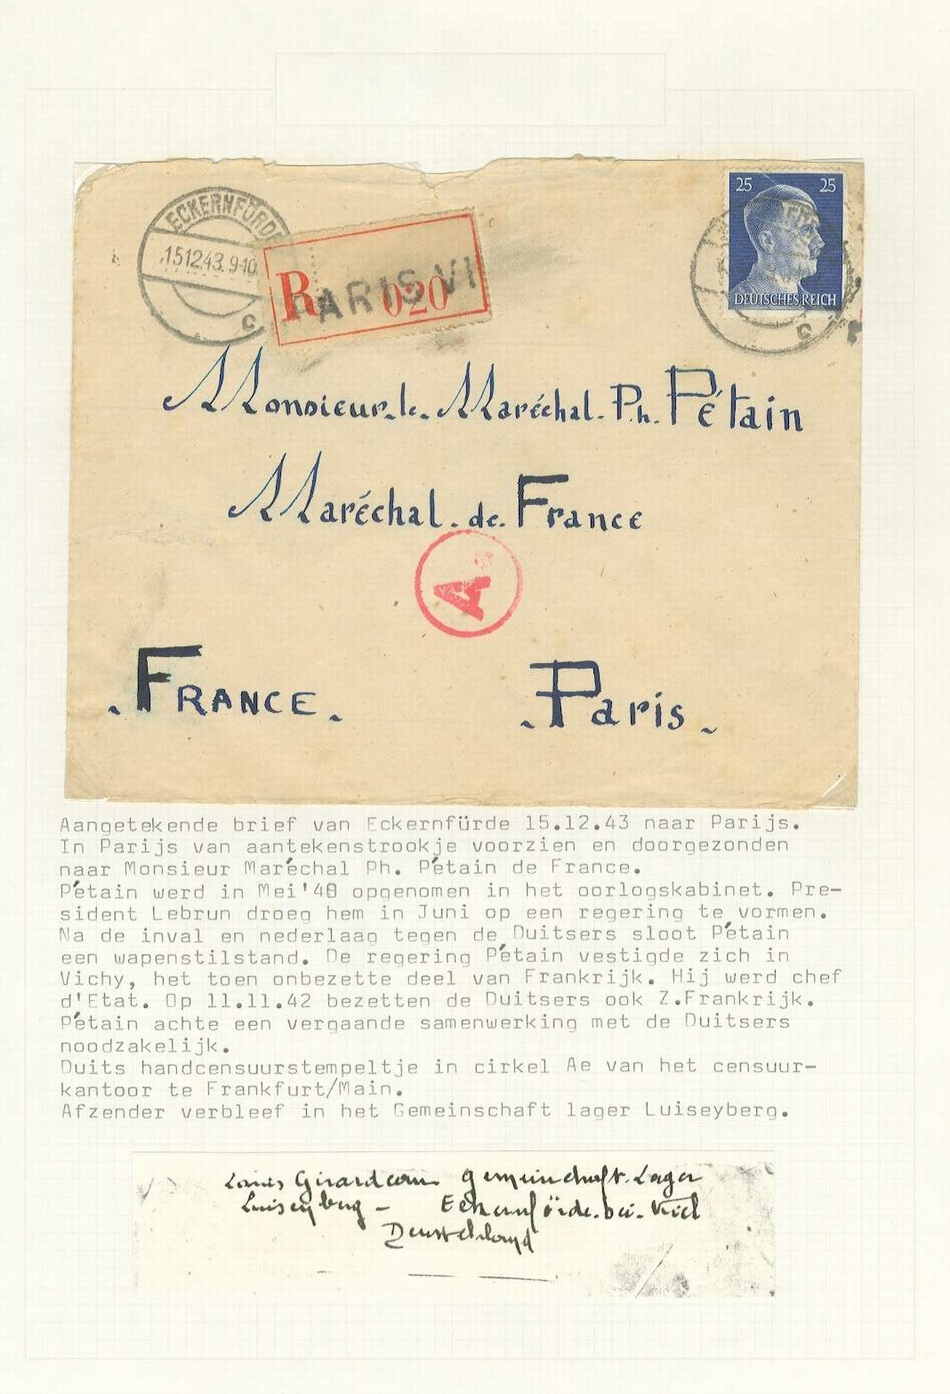 ECKERNFÖRDE
15.12.43.9-10
c
R 020
PARIS VI
25 25
DEUTSCHES REICH
c
Monsieur-le-Maréchal-Ph. Pétain
Maréchal-de-France
A
-FRANCE- -Paris-
Aangetekende brief van Eckernfürde 15.12.43 naar Parijs.
In Parijs van aantekenstrookje voorzien en doorgezonden
naar Monsieur Maréchal Ph. Pétain de France.
Pétain werd in Mei'40 opgenomen in het oorlogskabinet. Pre-
sident Lebrun droeg hem in Juni op een regering te vormen.
Na de inval en nederlaag tegen de Duitsers sloot Pétain
een wapenstilstand. De regering Pétain vestigde zich in
Vichy, het toen onbezette deel van Frankrijk. Hij werd chef
d'Etat. Op 11.11.42 bezetten de Duitsers ook Z.Frankrijk.
Pétain achte een vergaande samenwerking met de Duitsers
noodzakelijk.
Duits handcensuurstempeltje in cirkel Ae van het censuur-
kantoor te Frankfurt/Main.
Afzender verbleef in het Gemeinschaft lager Luiseyberg.
Gemeinschaft-Lager
Luiseyberg - Eckernförde-bei-Kiel